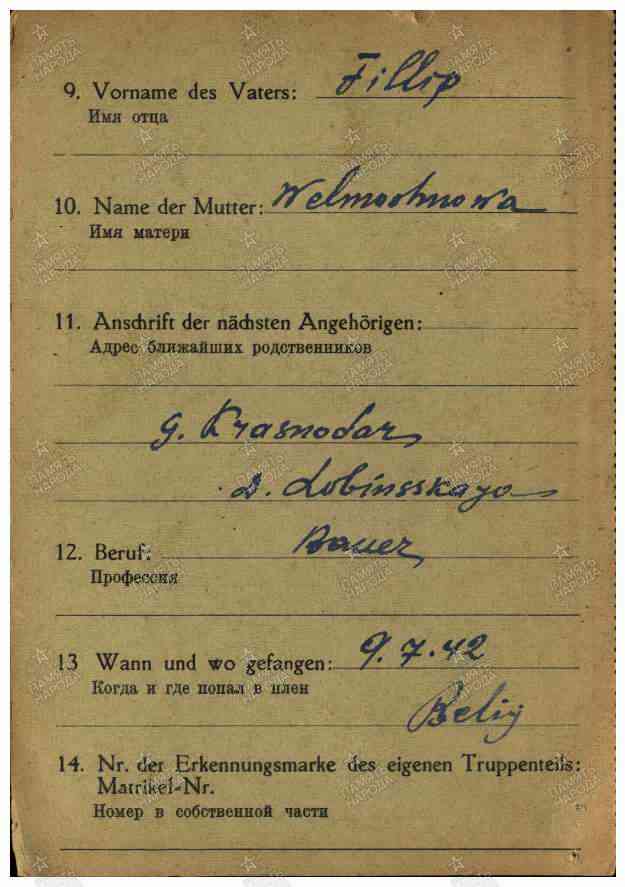 9. Vorname des Vaters: Fillip
Имя отца
10. Name der Mutter: Welmoschnowa
Имя матери
11. Anschrift der nächsten Angehörigen:
Адрес ближайших родственников
G. Krasnodar
D. Lobinsskaya
12. Beruf: Bauer
Профессия
13 Wann und wo gefangen: 9.7.42
Когда и где попал в плен
Belig
14. Nr. der Erkennungsmarke des eigenen Truppenteils:
Matrikel-Nr.
Номер в собственной части
ПАМЯТЬ НАРОДА